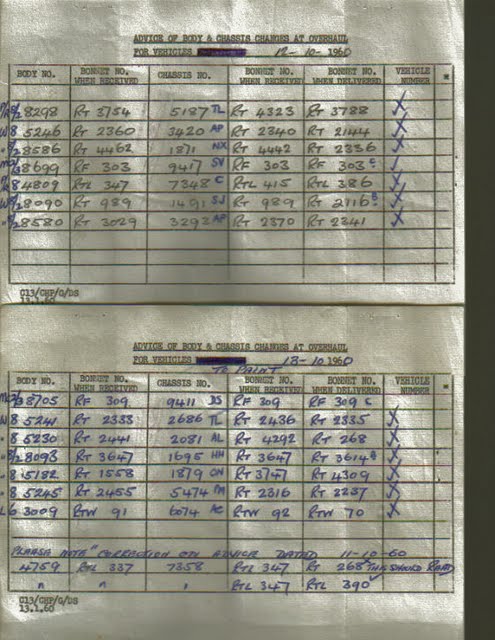 ADVICE OF BODY & CHASSIS CHANGES AT OVERHAUL
FOR VEHICLES 12-10-1960
BODY NO. BONNET NO. WHEN RECEIVED CHASSIS NO. BONNET NO. WHEN RECEIVED BONNET NO. WHEN DELIVERED VEHICLE NUMBER *
8298 RT 3754 5187 TL RT 4323 RT 3788 X
W8 5246 RT 2360 3420 AP RT 2340 RT 2144 X
8586 RT 4462 1871 NX RT 4442 RT 2336 X
8699 RF 303 9417 SV RF 303 RF 303 C
8 4809 RTL 347 7348 C RTL 415 RTL 386 X
8090 RT 989 1491 SJ RT 989 RT 2116 B X
8580 RT 3029 3293 AP RT 2370 RT 2341 X
C13/CHP/O/DS
13.1.60
ADVICE OF BODY & CHASSIS CHANGES AT OVERHAUL
FOR VEHICLES 13-10 1960
TO PAINT
BODY NO. BONNET NO. WHEN RECEIVED CHASSIS NO. BONNET NO. WHEN RECEIVED BONNET NO. WHEN DELIVERED VEHICLE NUMBER *
8705 RF 309 9411 DS RF 309 RF 309 C
W 8 5241 RT 2333 2686 TL RT 2436 RT 2335 X
" 8 5230 RT 2441 2081 AL RT 4292 RT 268 X
8093 RT 3647 1695 HH RT 3647 RT 3614 X
8 5182 RT 1558 1879 RT 3747 RT 4309 X
" 8 5245 RT 2455 5474 RT 2316 RT 2237 X
L6 3009 RTW 91 6074 AC RTW 92 RTW 70 X
PLEASE NOTE" CORRECTION ON ADVICE DATED 11-10-60
4759 RTL 337 7358 RTL 347 RT 268 THIS SHOULD READ
" " " RTL 347 RTL 390
C13/CHP/O/DS
13.1.60